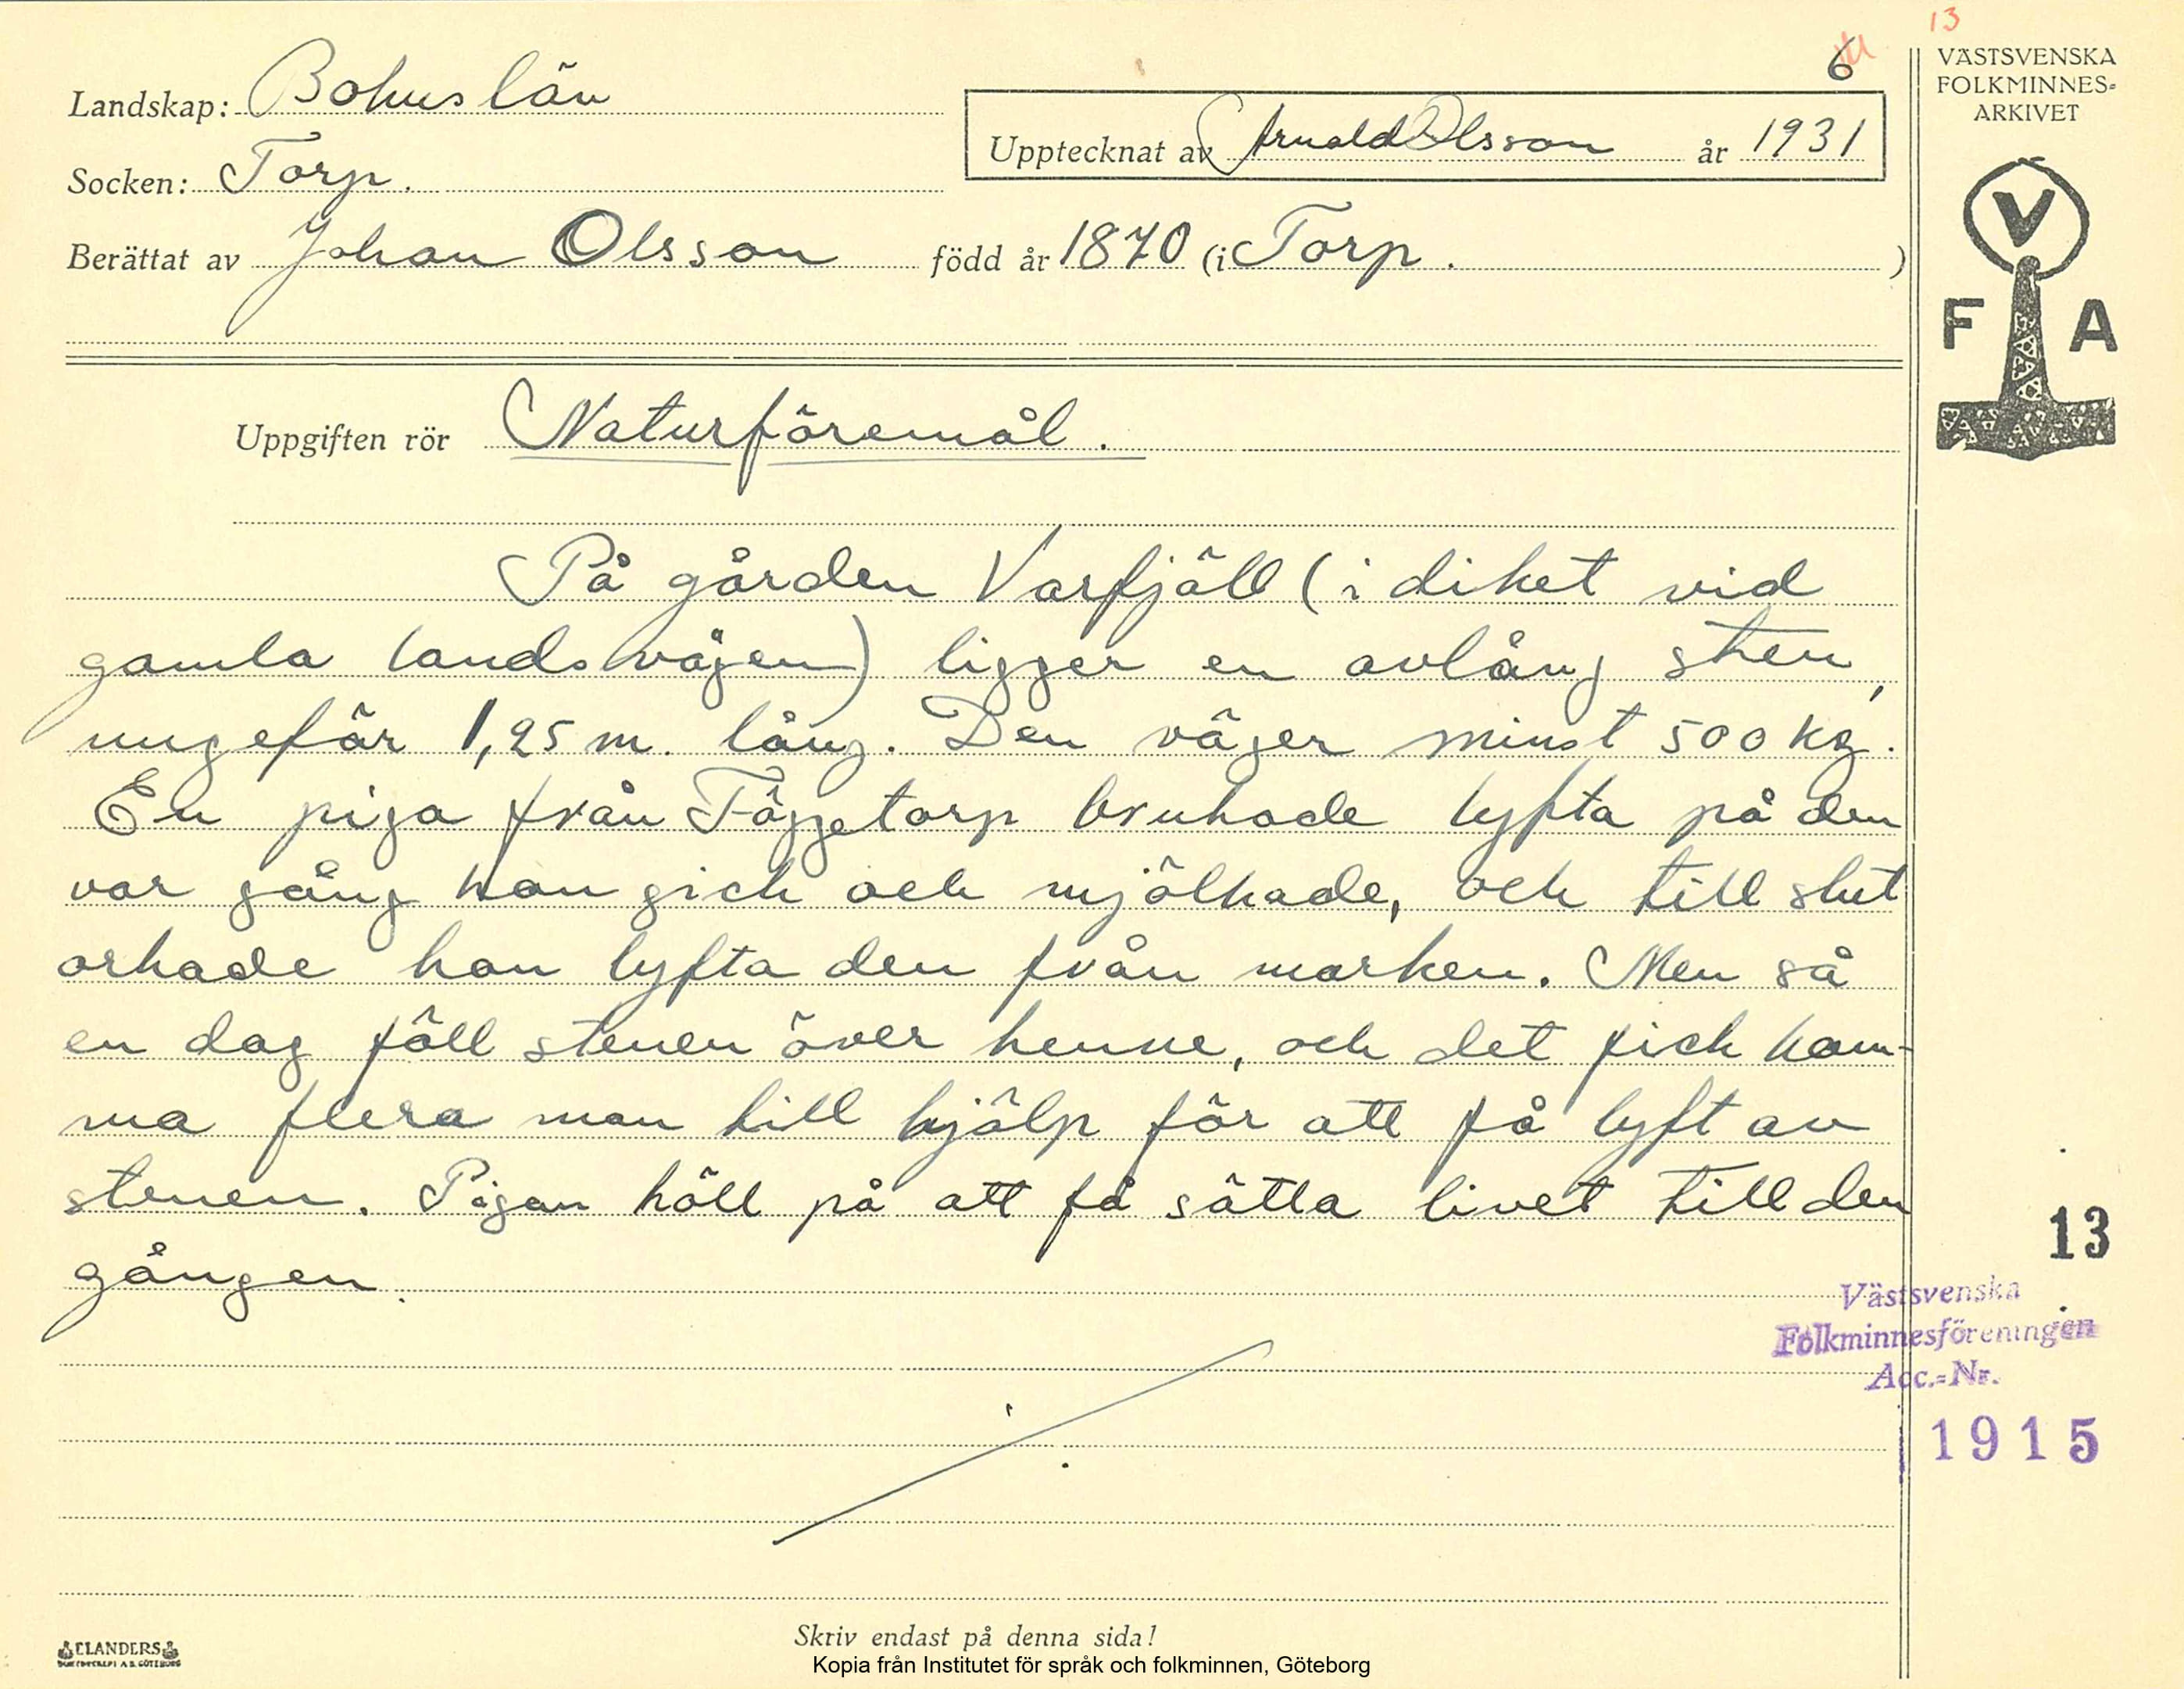 13
6
VÄSTSVENSKA
FOLKMINNES-
ARKIVET
Landskap: Bohuslän
Upptecknat av Arnold Olsson år 1931
Socken: Torp.
Berättat av Johan Olsson född år 1870 (i Torp. )
V
F A
Uppgiften rör Naturföremål.
På gården Varfjäll (i diket vid
gamla landsvägen) ligger en avlång sten,
ungefär 1,25 m. lång. Den väger minst 500 kg.
En piga från Fäggetorp brukade lyfta på den
var gång hon gick och mjölkade, och till slut
orkade hon lyfta den från marken. Men så
en dag föll stenen över henne, och det fick kom-
ma flera man till hjälp för att få lyft av
stenen. Pigan höll på att få sätta livet till den
gången.
13
Västsvenska
Folkminnesföreningen
Acc.-Nr.
1915
Skriv endast på denna sida!
ELANDERS
BOKTRYCKERI A.B. GÖTEBORG
Kopia från Institutet för språk och folkminnen, Göteborg